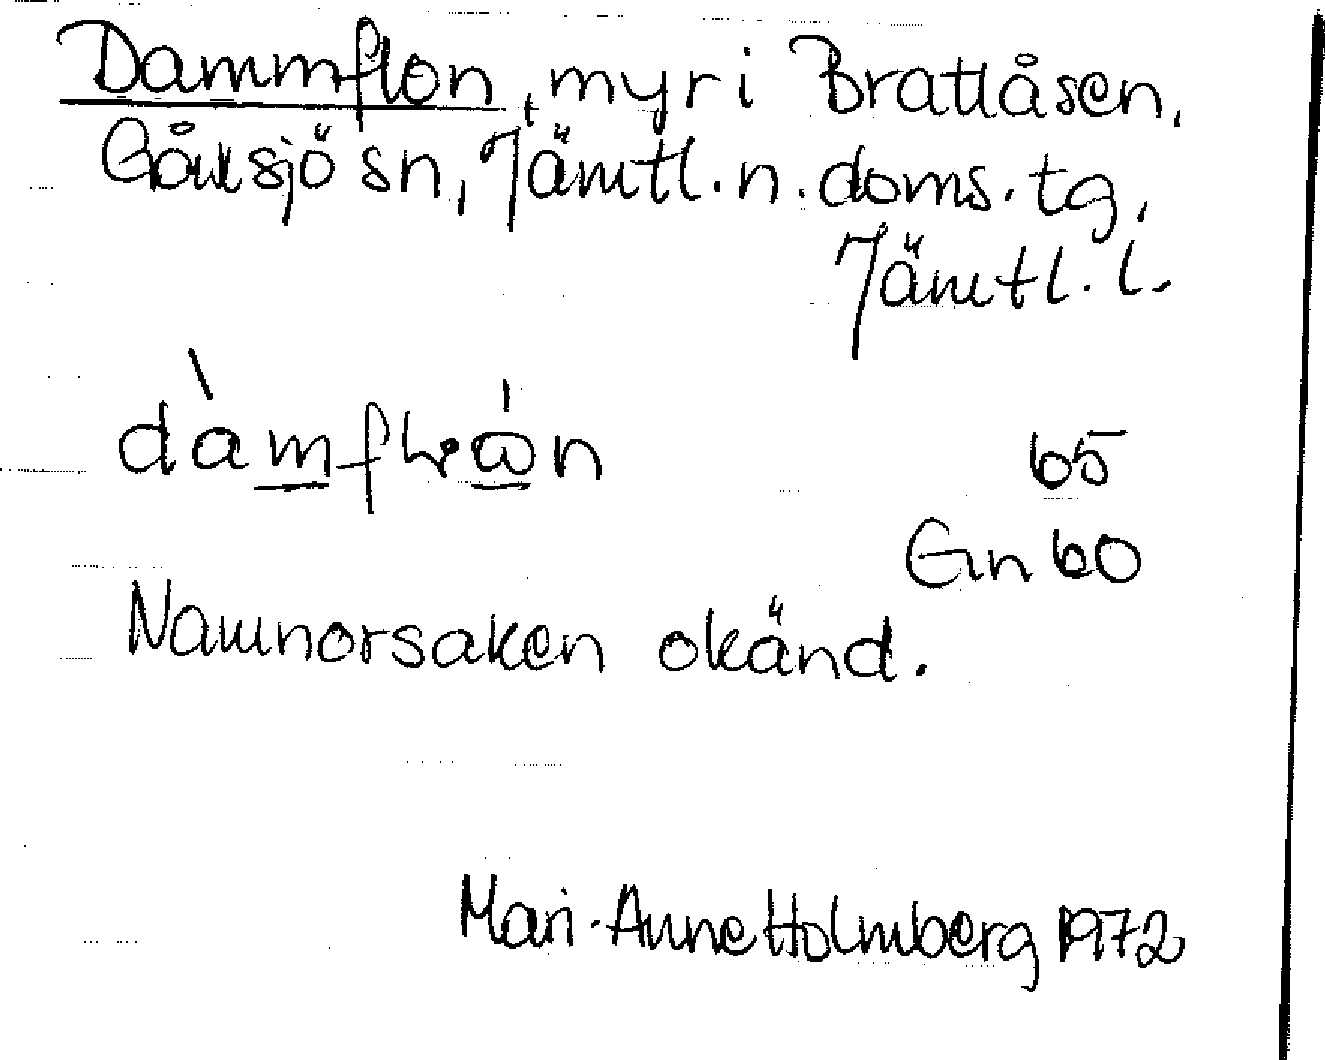 Dammflon, myr i Brattåsen,
Gåxsjö sn, Jämtl. n. doms. tg,
Jämtl. l.
65
Gn 60
Namnorsaken okänd.
Mari-Anne Holmberg 1972